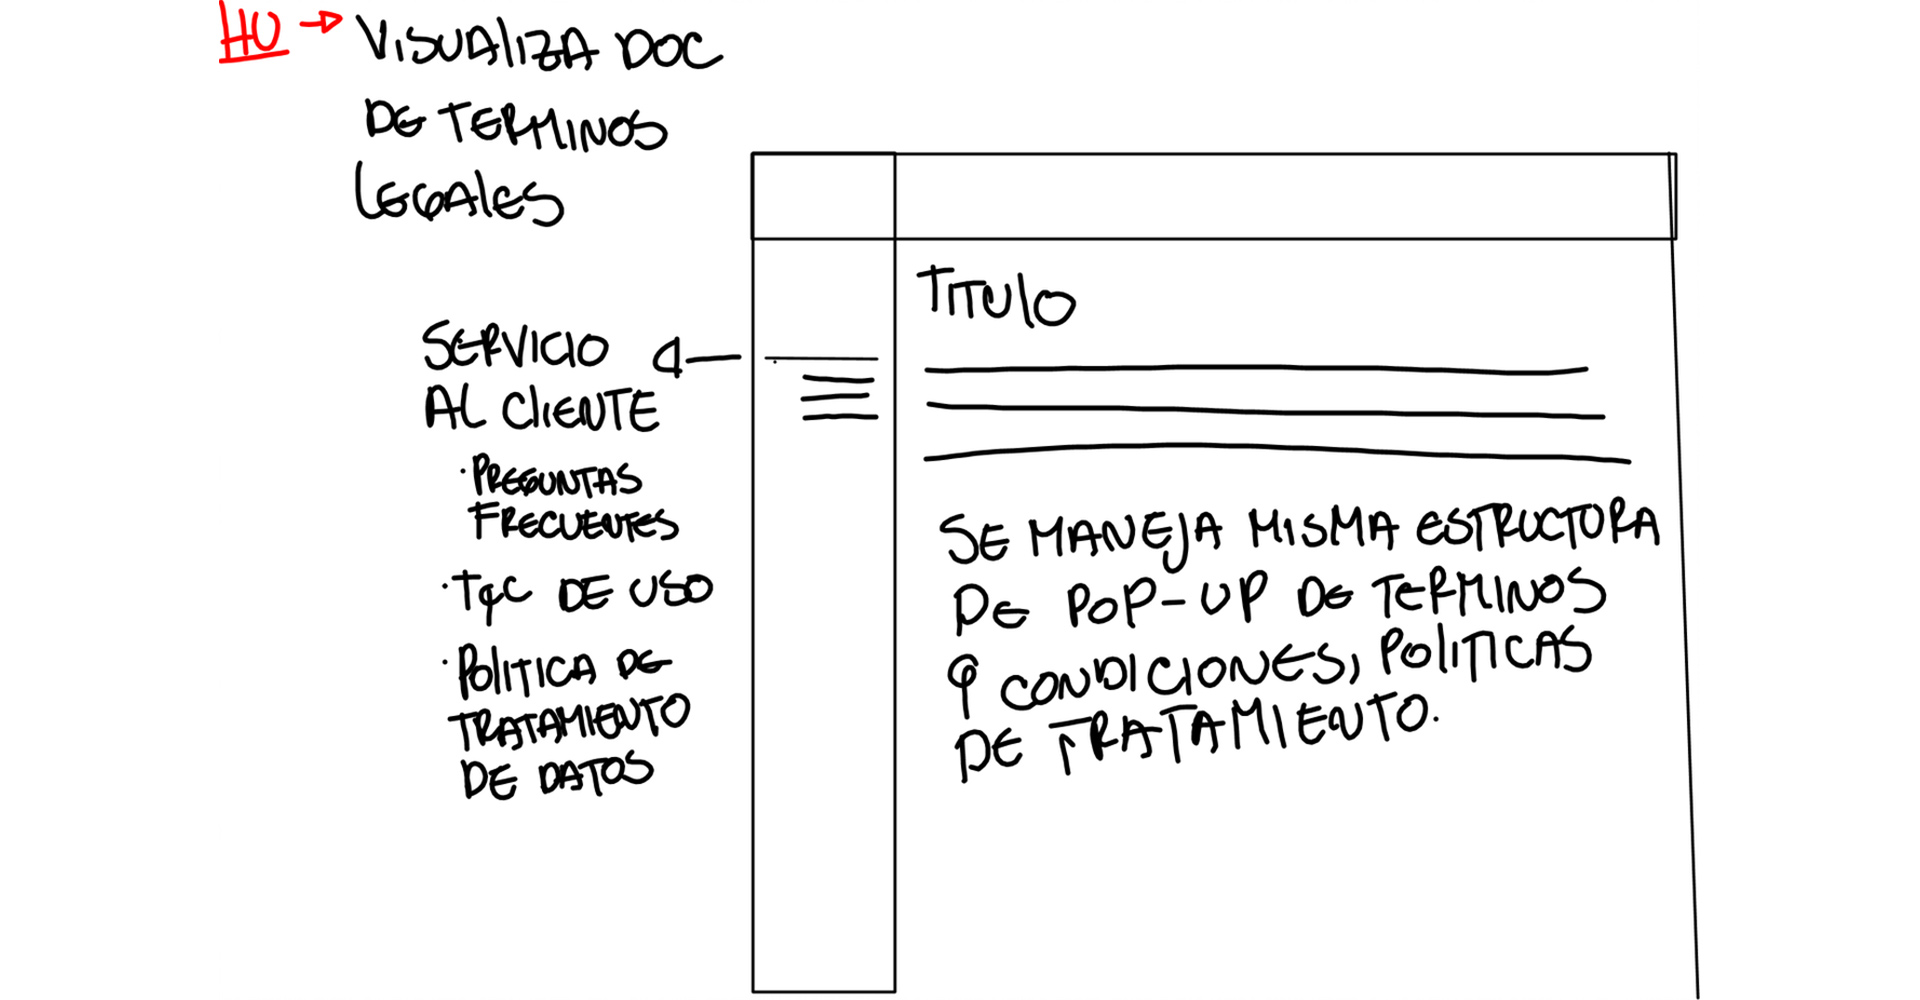 HU → VISUALIZA DOC
DE TERMINOS
LEGALES
SERVICIO
AL CLIENTE
· PREGUNTAS
FRECUENTES
· TyC DE USO
· POLITICA DE
TRATAMIENTO
DE DATOS
TITULO
SE MANEJA MISMA ESTRUCTURA
DE POP-UP DE TERMINOS
y CONDICIONES, POLITICAS
DE TRATAMIENTO.